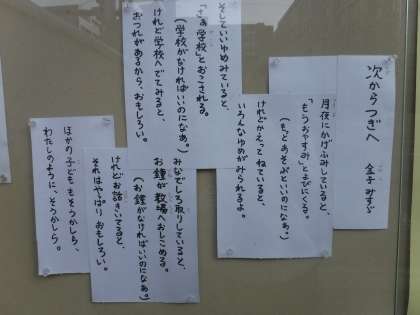 次からつぎへ
金子みすゞ
月夜にかげふみしていると、
「もうおやすみ」とよびにくる。
(もっとあそぶといいのになあ。)
けれどかえってねていると、
いろんなゆめがみられるよ。
そしていいゆめみていると、
「さあ学校」とおこされる。
(学校がなければいいのになあ。)
けれど学校へでてみると、
おつれがあるから、おもしろい。
みなでしろ取りしていると、
お鐘が教場へおしこめる。
(お鐘がなければいいのになあ。)
けれどお話きいてると、
それはやっぱりおもしろい。
ほかの子どももそうかしら、
わたしのように、そうかしら。